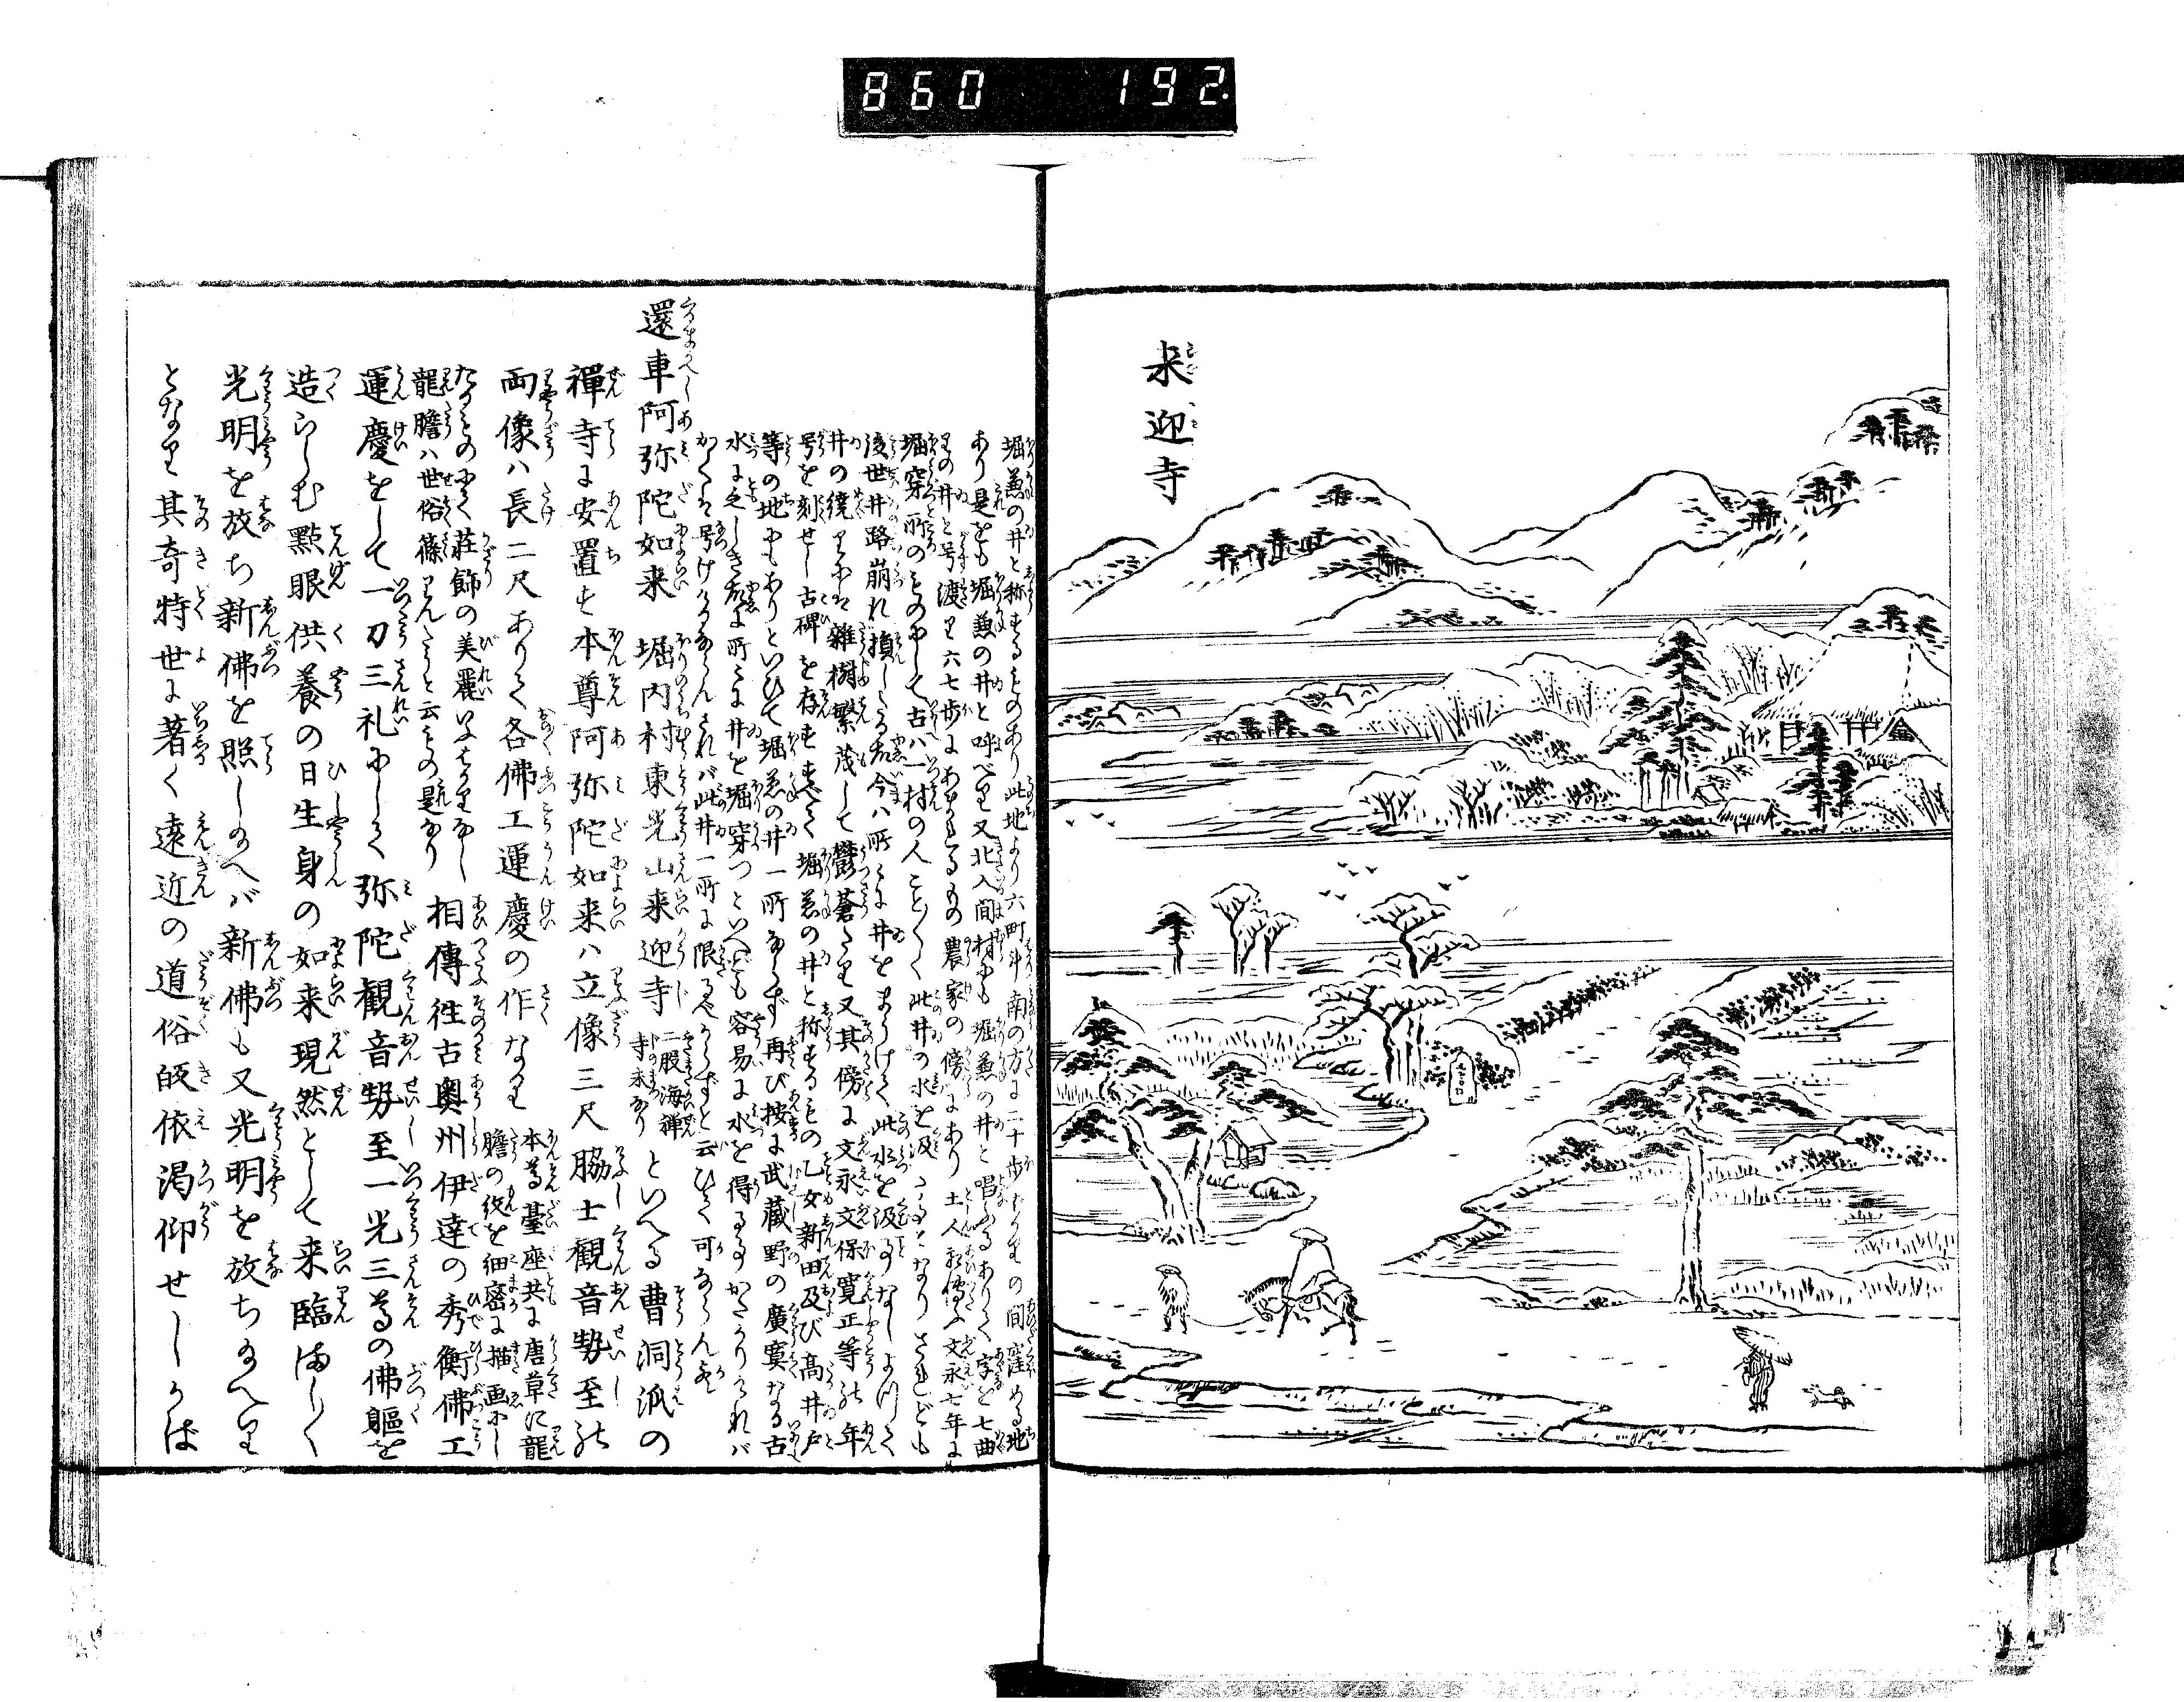 860 192
来迎寺
堀兼の井と称するものあり此地より六町斗南の方に二十歩ばかりの間窪める地
あり是をも堀兼の井と呼べり又北入間村にも堀兼の井と唱ふるありて字を七曲
りの井と号渡り六七歩にあまれるもの農家の傍にあり土人相傳ふ文永七年に
堀穿所のものにして古ハ一村の人こと〴〵く此井の水を汲たるとなりされども
後世井路崩れ損したる故今ハ所々に井をまうけて此水を汲事なしよつて
井の繞りにハ雑樹繁茂して欝蒼たり又其傍に文永文保寛正等の年
号を刻せし古碑を存すすべて堀兼の井と称するもの乙女新田及び高井戸
等の地にもありといひて堀兼の井一所ならず再び按に武蔵野の廣寞なる古
水に乏しき故に所々に井を堀穿つといへども容易に水を得る事かたかりけれバ
かくハ号けけるならんされバ此井一所に限るべからずと云ひて可ならん歟
還車阿弥陀如来 堀内村東光山来迎寺 二股海禅寺末なり といへる曹洞派の
禅寺に安置す本尊阿弥陀如来ハ立像三尺脇士観音勢至の
両像ハ長二尺ありて各佛工運慶の作なり 本尊臺座共に唐草に龍膽の紋を細密に描画にし
たるものにて荘飾の美麗いふはかりなし龍膽ハ世俗篠りんだうと云もの是なり 相傳往古奥州伊達の秀衡佛工
運慶をして一刀三礼にして弥陀観音勢至一光三尊の佛軀を
造らしむ點眼供養の日生身の如来現然として来臨ましく
光明を放ち新佛を照し給へバ新佛も又光明を放ち給へり
となり其奇特世に著く遠近の道俗皈依渇仰せしかは